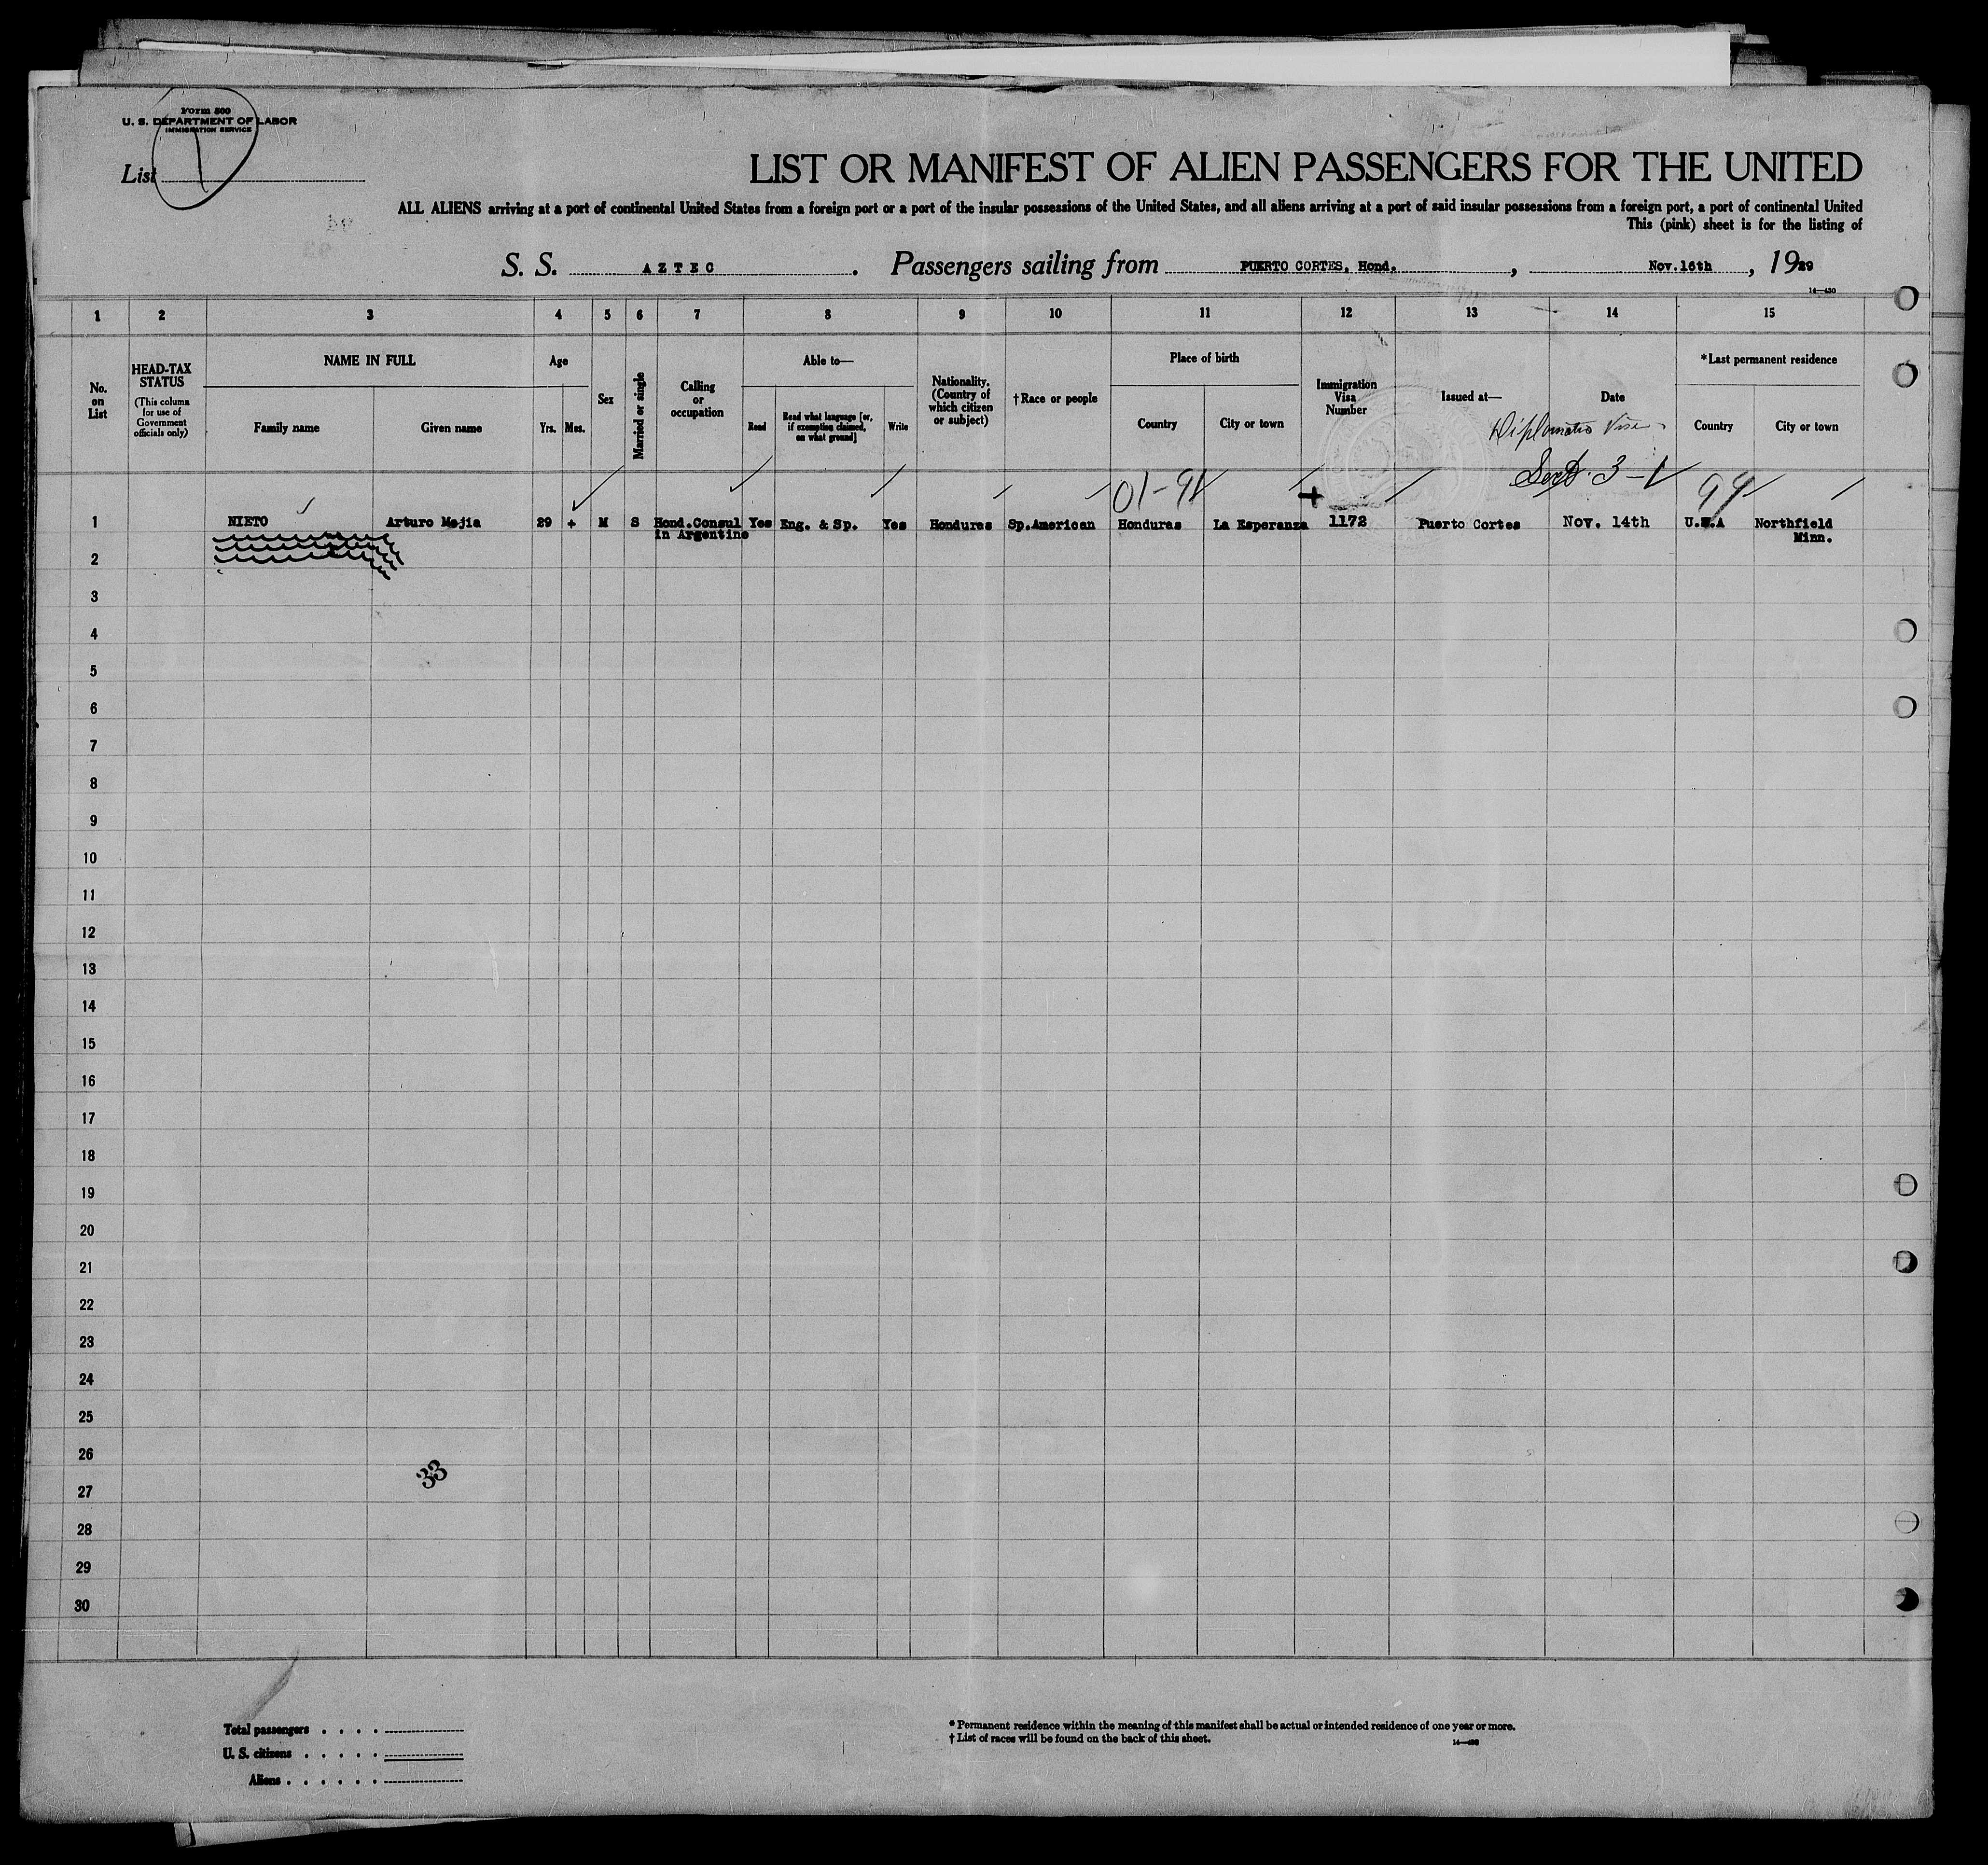 Form 500
U. S. DEPARTMENT OF LABOR
IMMIGRATION SERVICE
List 1
LIST OR MANIFEST OF ALIEN PASSENGERS FOR THE UNITED
ALL ALIENS arriving at a port of continental United States from a foreign port or a port of the insular possessions of the United States, and all aliens arriving at a port of said insular possessions from a foreign port, a port of continental United
This (pink) sheet is for the listing of
S. S. AZTEC. Passengers sailing from PUERTO CORTES, Hond., Nov.16th, 1929
14—430
1 2 3 4 5 6 7 8 9 10 11 12 13 14 15
No. on List
HEAD-TAX STATUS
(This column for use of Government officials only)
NAME IN FULL
Family name
Given name
Age
Yrs. Mos.
Sex
Married or single
Calling or occupation
Able to—
Read
Read what language [or, if exemption claimed, on what ground]
Write
Nationality. (Country of which citizen or subject)
† Race or people
Place of birth
Country
City or town
Immigration Visa Number
Issued at—
Date
* Last permanent residence
Country
City or town
Diplomatic Vise
Sect. 3-1
01-91
99
1 NIETO Arturo Mejia 29 + M S Hond.Consul Yes Eng. & Sp. Yes Honduras Sp.American Honduras La Esperanza 1172 Puerto Cortes Nov. 14th U.S.A Northfield
in Argentine Minn.
2
3
4
5
6
7
8
9
10
11
12
13
14
15
16
17
18
19
20
21
22
23
24
25
26
33
27
28
29
30
Total passengers . . . .
U. S. citizens . . . . .
Aliens . . . . . .
* Permanent residence within the meaning of this manifest shall be actual or intended residence of one year or more.
† List of races will be found on the back of this sheet.
14—430